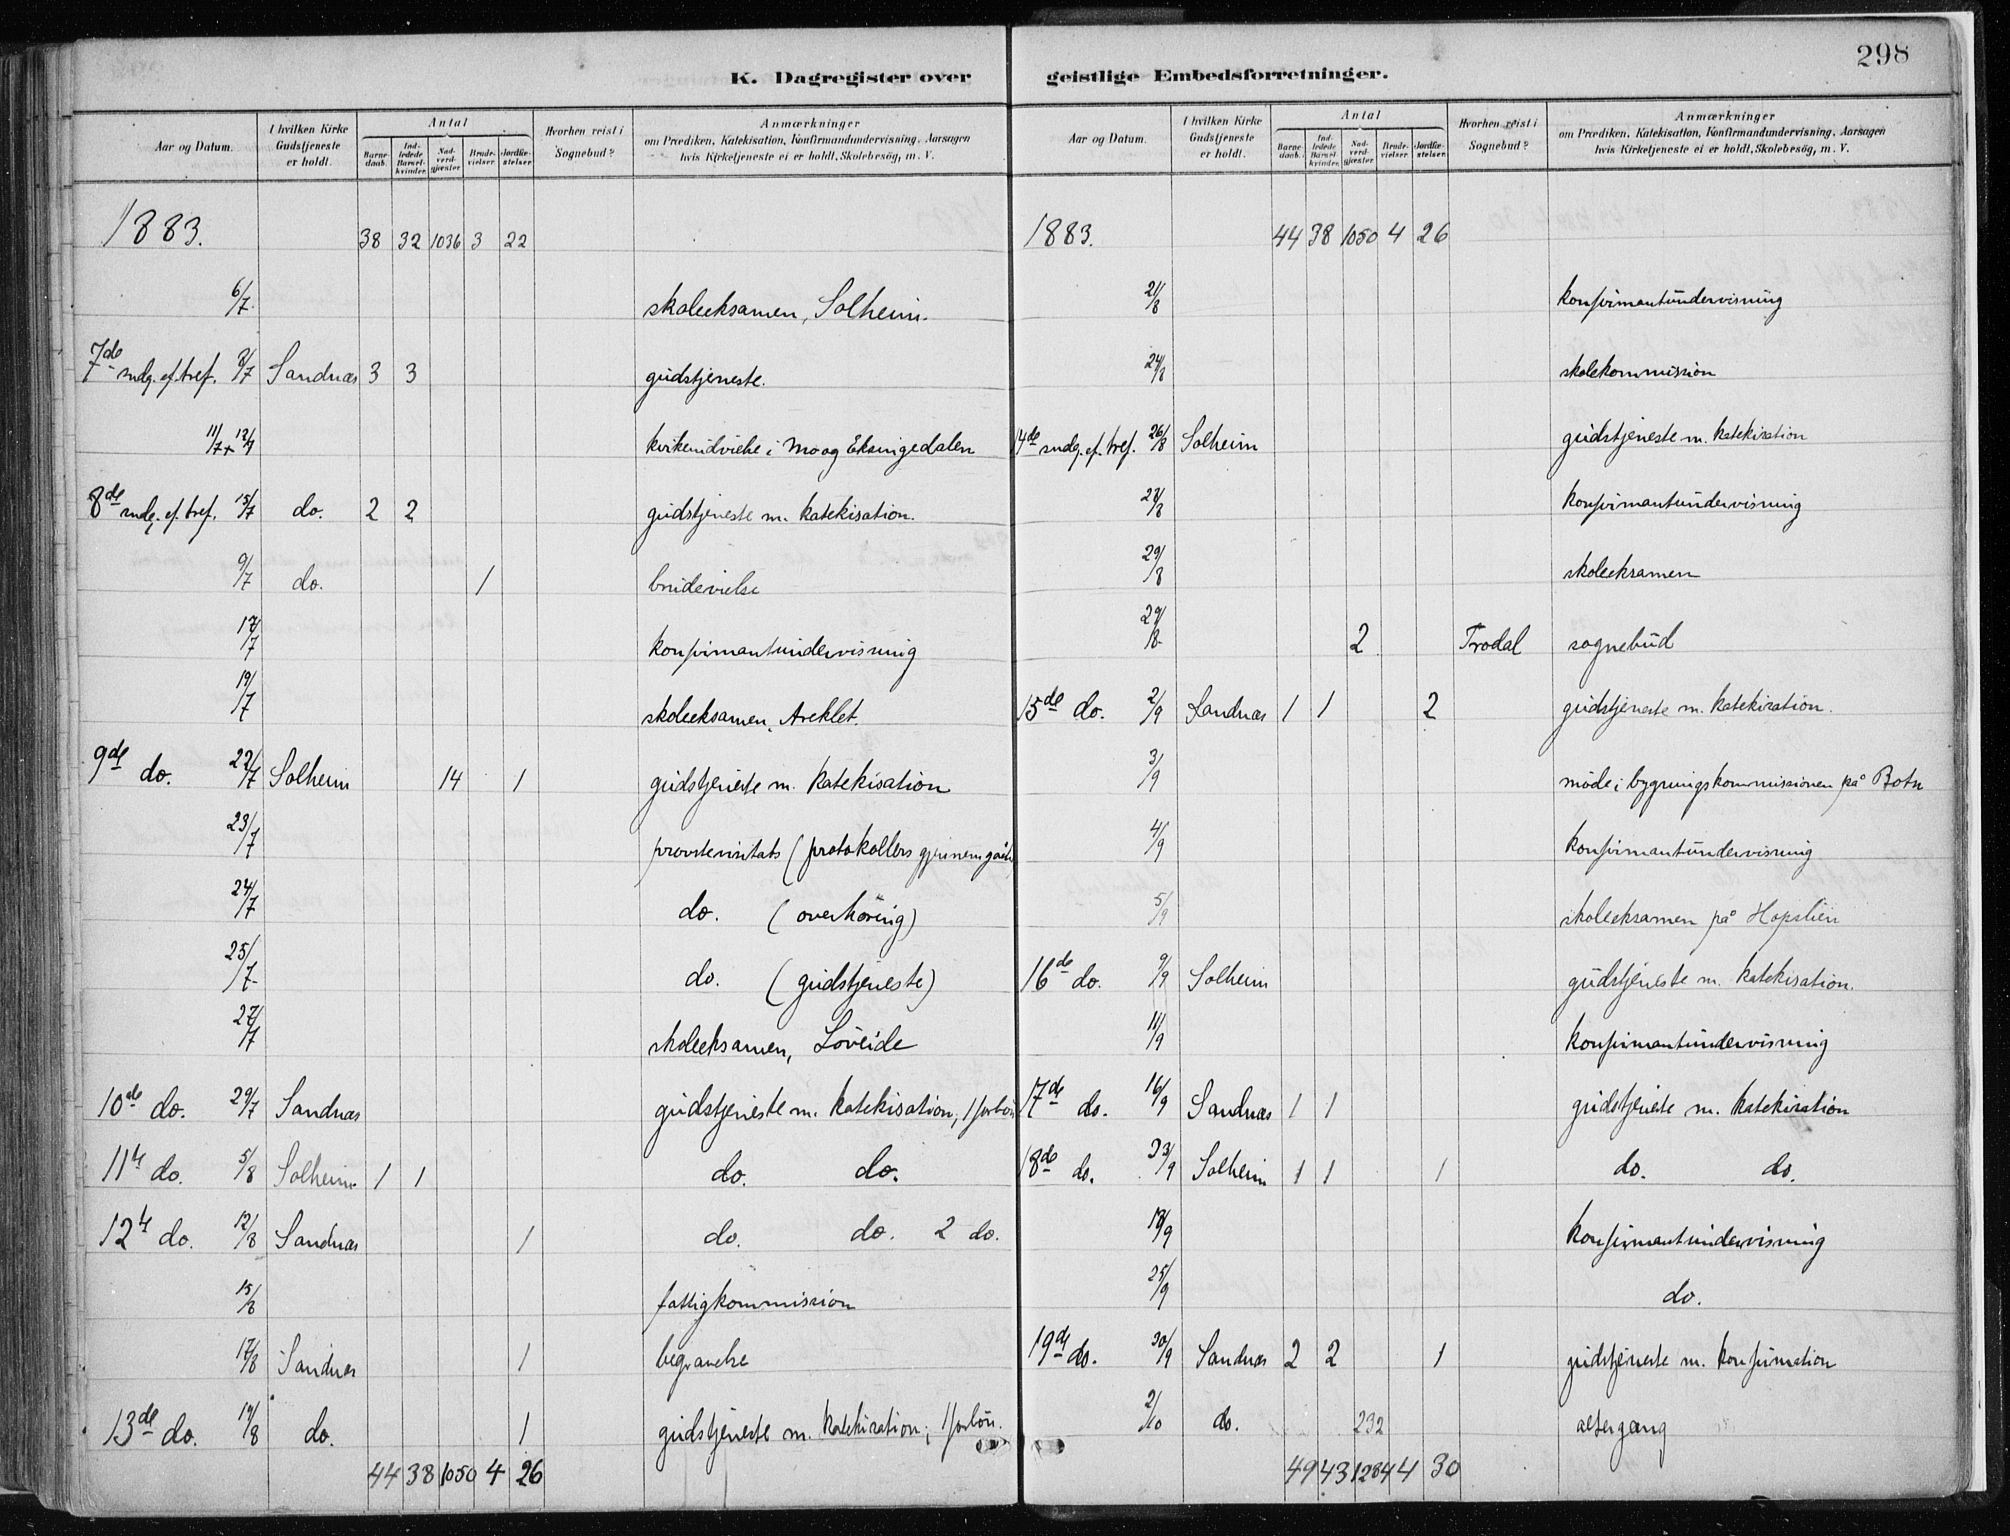 298
K. Dagregister over geistlige Embedsforretninger.
Aar og Datum. I hvilken Kirke Gudstjeneste er holdt. Antal Barnedaab. Indledede Barselkvinder. Nadverdgjæster Brudevielser Jordfæstelser Hvorhen reist i Sognebud? Anmærkninger om Prædiken, Katekisation, Konfirmandundervisning, Aarsagen hvis Kirketjeneste ei er holdt, Skolebesög, m. V.
1883. 38 32 1036 3 22
6/7 skoleeksamen, Solheim.
7de sndg. ef. tref. 8/7 Sandnæs 3 3 gudstjeneste.
11/7 + 12/7 kirkeindvielse i Mo og Eksingedalen
8de sndg. ef. tref. 15/7 do. 2 2 gudstjeneste m. katekisation.
9/7 do. 1 brudevielse
17/7 konfirmantundervisning
19/7 skoleeksamen, Areklet.
9de do. 22/7 Solheim 14 1 gudstjeneste m. katekisation
23/7 provstevisitats (protokollers gjennemgåelse)
24/7 do. (overhøring)
25/7 do. (gudstjeneste)
27/7 skoleeksamen, Löveide
10de do. 29/7 Sandnæs gudstjeneste m. katekisation; 1 forbön
11te do. 5/8 Solheim 1 1 do. do.
12te do. 12/8 Sandnæs 1 do. do. 2 do.
15/8 fattigkommission
17/8 Sandnæs 1 begravelse
13de do. 19/8 do. 1 gudstjeneste m. katekisation; 1 forbön.
44 38 1050 4 26
Aar og Datum. I hvilken Kirke Gudstjeneste er holdt. Antal Barnedaab. Indledede Barselkvinder. Nadverdgjæster Brudevielser Jordfæstelser Hvorhen reist i Sognebud? Anmærkninger om Prædiken, Katekisation, Konfirmandundervisning, Aarsagen hvis Kirketjeneste ei er holdt, Skolebesög, m. V.
1883. 44 38 1050 4 26
21/8 konfirmantundervisning
24/8 skolekommission
14de sndg. ef. tref. 26/8 Solheim gudstjeneste m. katekisation
28/8 konfirmantundervisning
29/8 skoleeksamen
29/8 2 Trodal sognebud
15de do. 2/9 Sandnæs 1 1 2 gudstjeneste m. katekisation.
3/9 møde i bygningskommissionen på Botn
4/9 konfirmantundervisning
5/9 skoleeksamen på Hopslien
16de do. 9/9 Solheim gudstjeneste m. katekisation.
11/9 konfirmantundervisning
17de do. 16/9 Sandnæs 1 1 gudstjeneste m. katekisation
18de do. 23/9 Solheim 1 1 1 do. do.
18/9 konfirmantundervisning
25/9 do.
19de do. 30/9 Sandnæs 2 2 1 gudstjeneste m. konfirmation
2/10 do. 232 altergang
49 43 1284 4 30